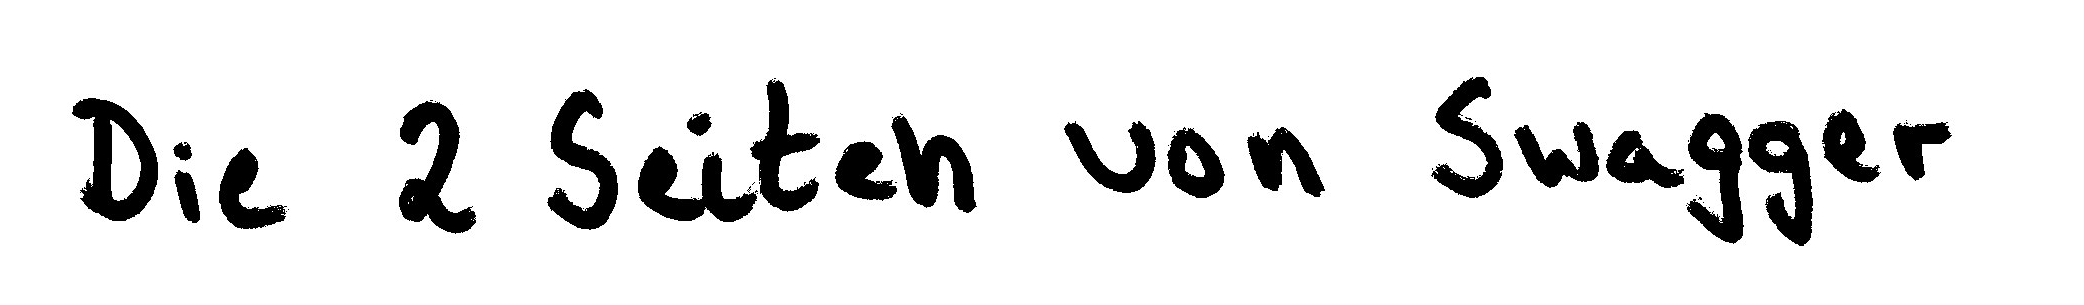 Die 2 Seiten von Swagger